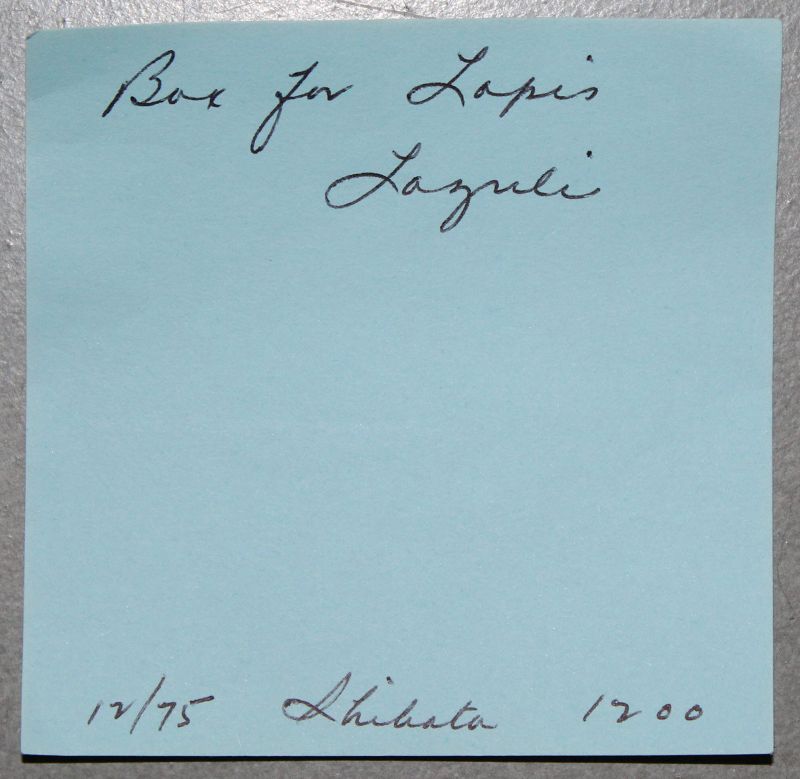 Box for Lapis
Lazuli
12/75 Shibata 1200